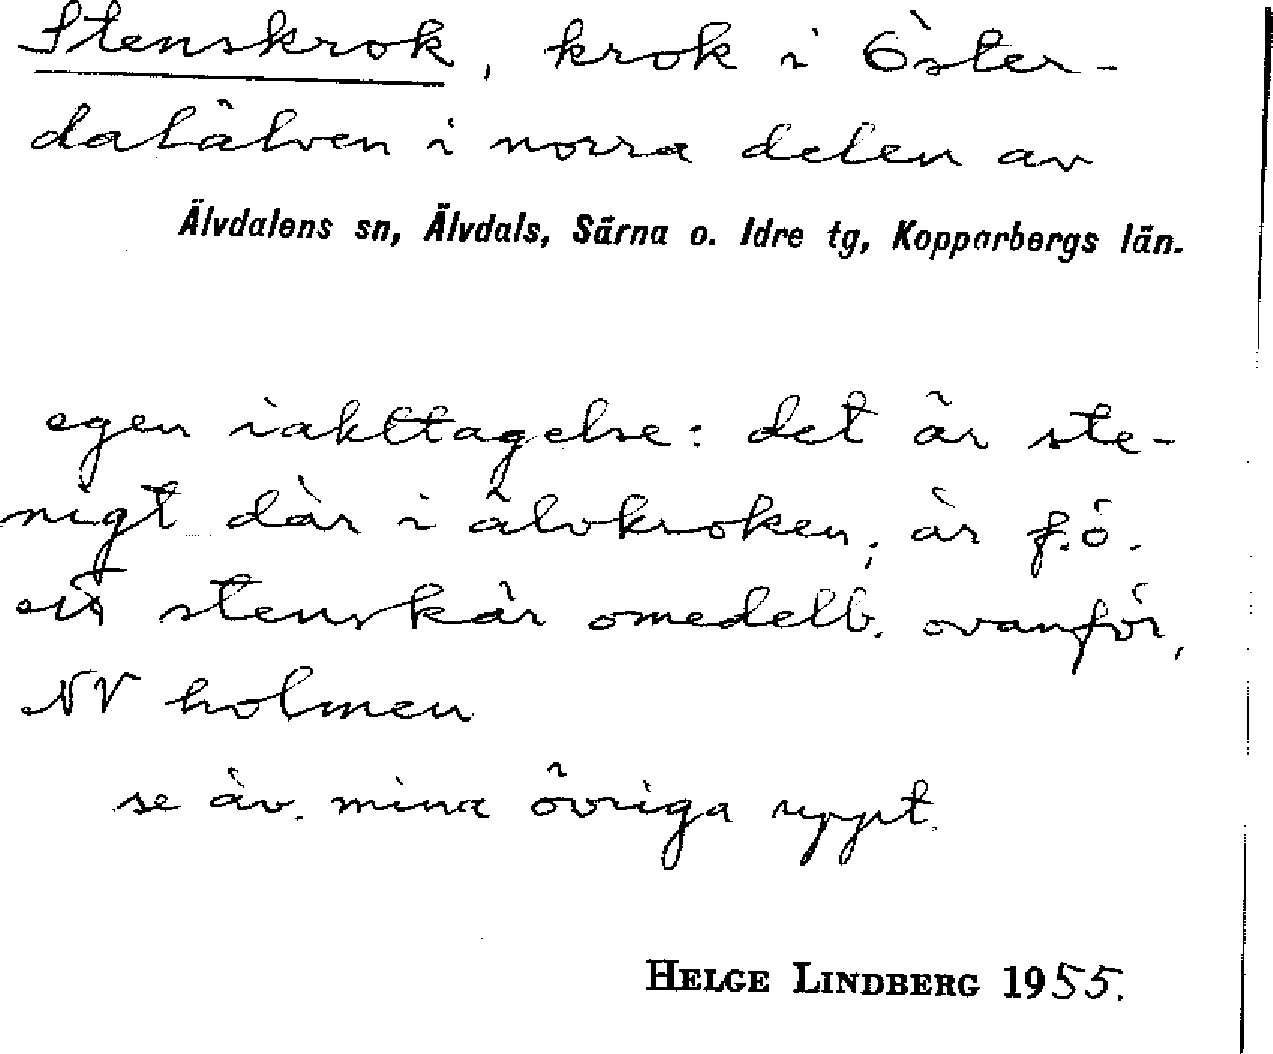 Stenskrok, krok i Öster-
dalälven i norra delen av
Älvdalens sn, Älvdals, Särna o. Idre tg, Kopparbergs län.
egen iakttagelse: det är ste-
nigt där i älvkroken; är f.ö.
ett stenskär omedelb. ovanför,
NV holmen
se äv. mina övriga uppt.
HELGE LINDBERG 1955.